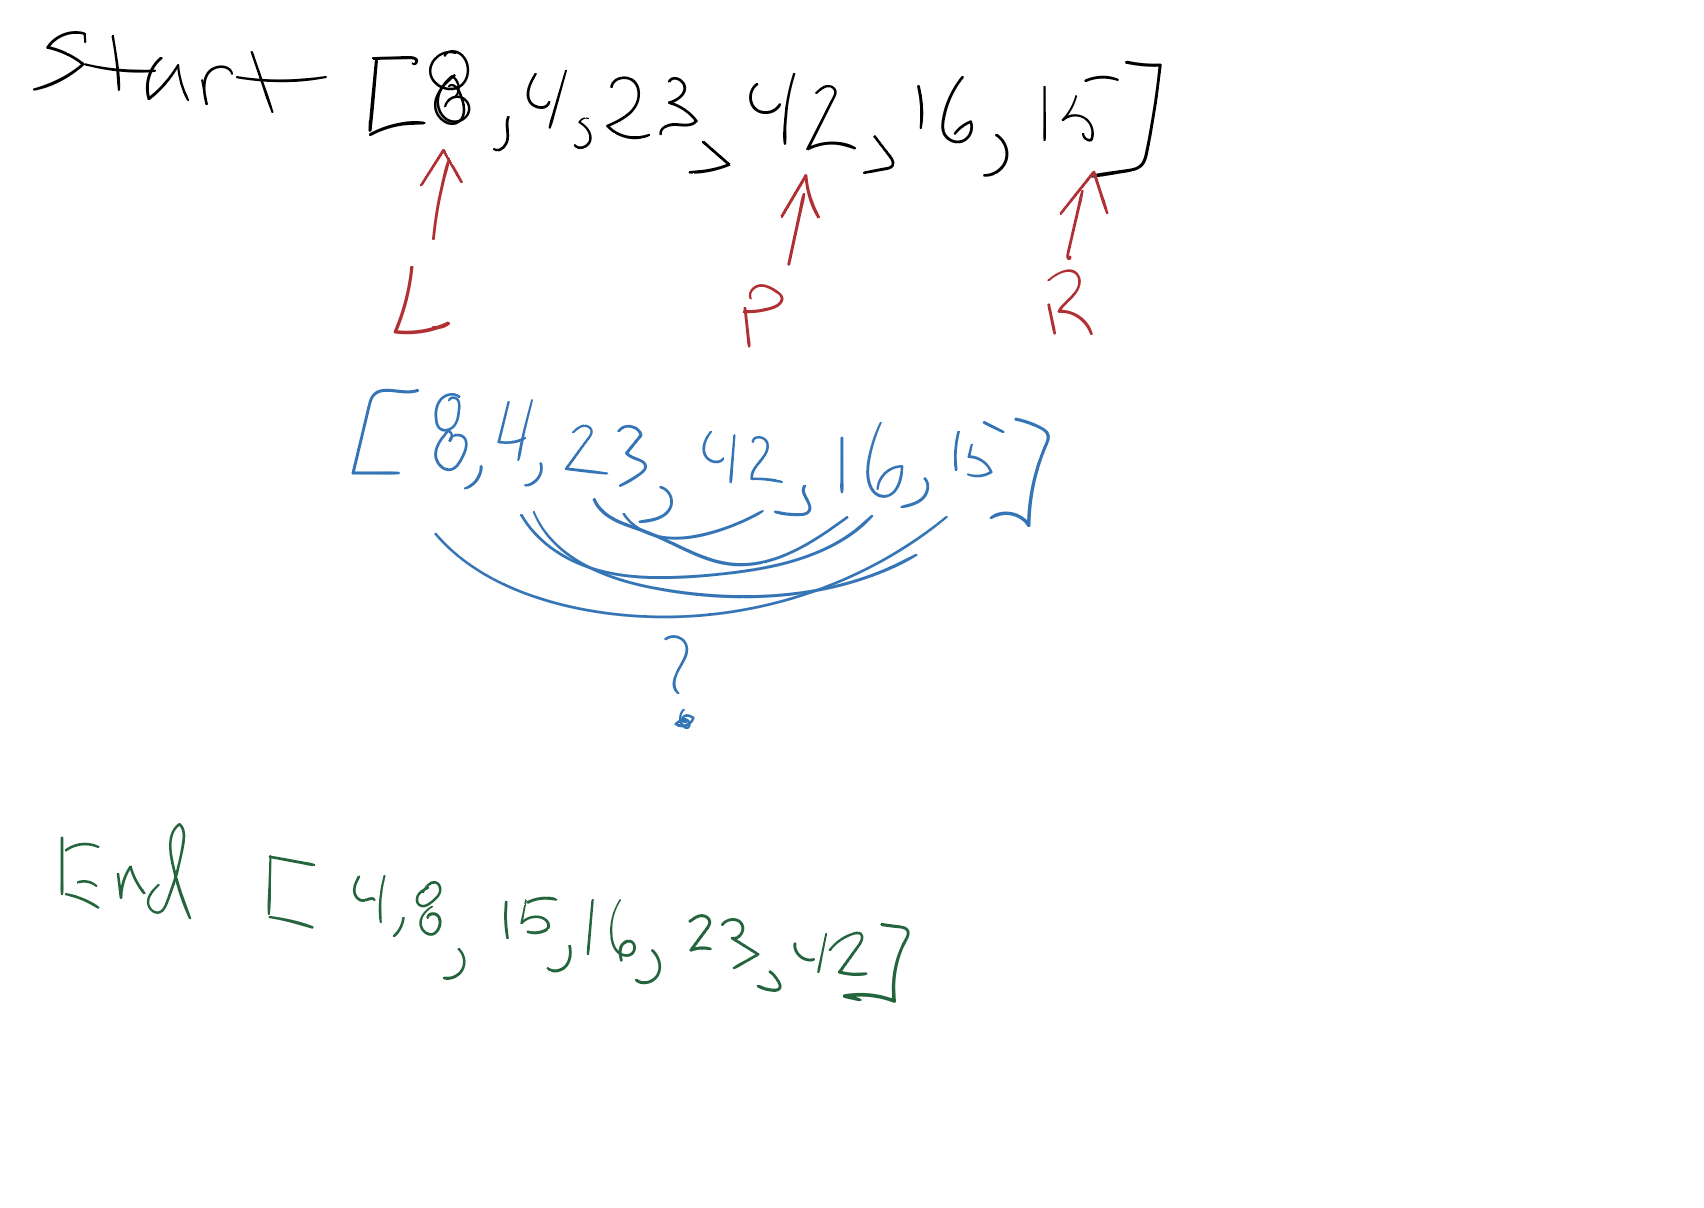 Start [8, 4, 23, 42, 16, 15]
L P R
[8, 4, 23, 42, 16, 15]
?
End [4, 8, 15, 16, 23, 42]